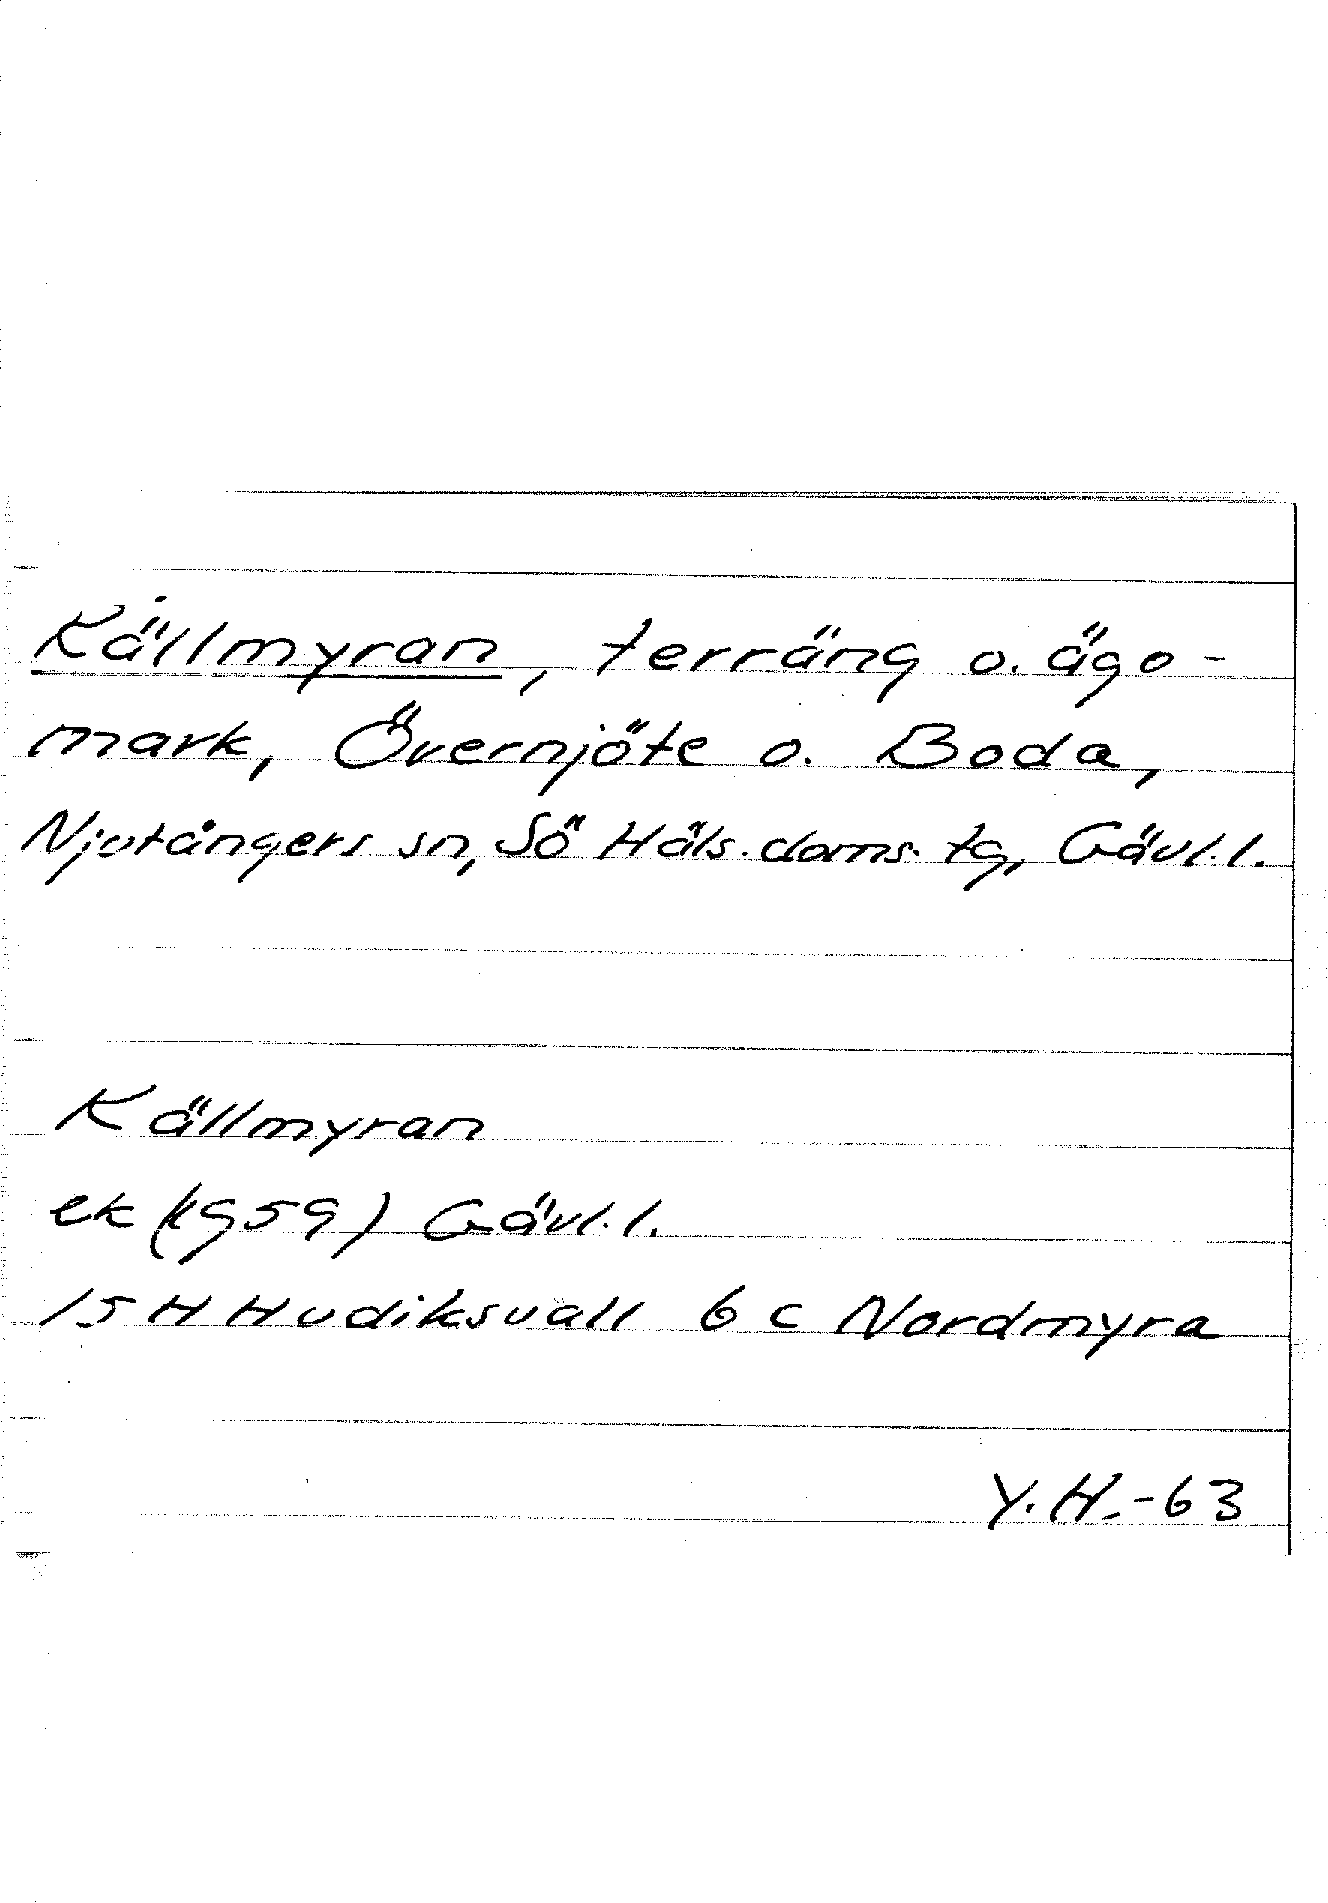 Källmyran, terräng o. ägo-
mark, Övernjöte o. Boda,
Njutångers sn, Sö Häls. doms. tg, Gävl. l.
Källmyran
ek (1959) Gävl. l.
15 H Hudiksvall 6 c Nordmyra
Y.H.-63